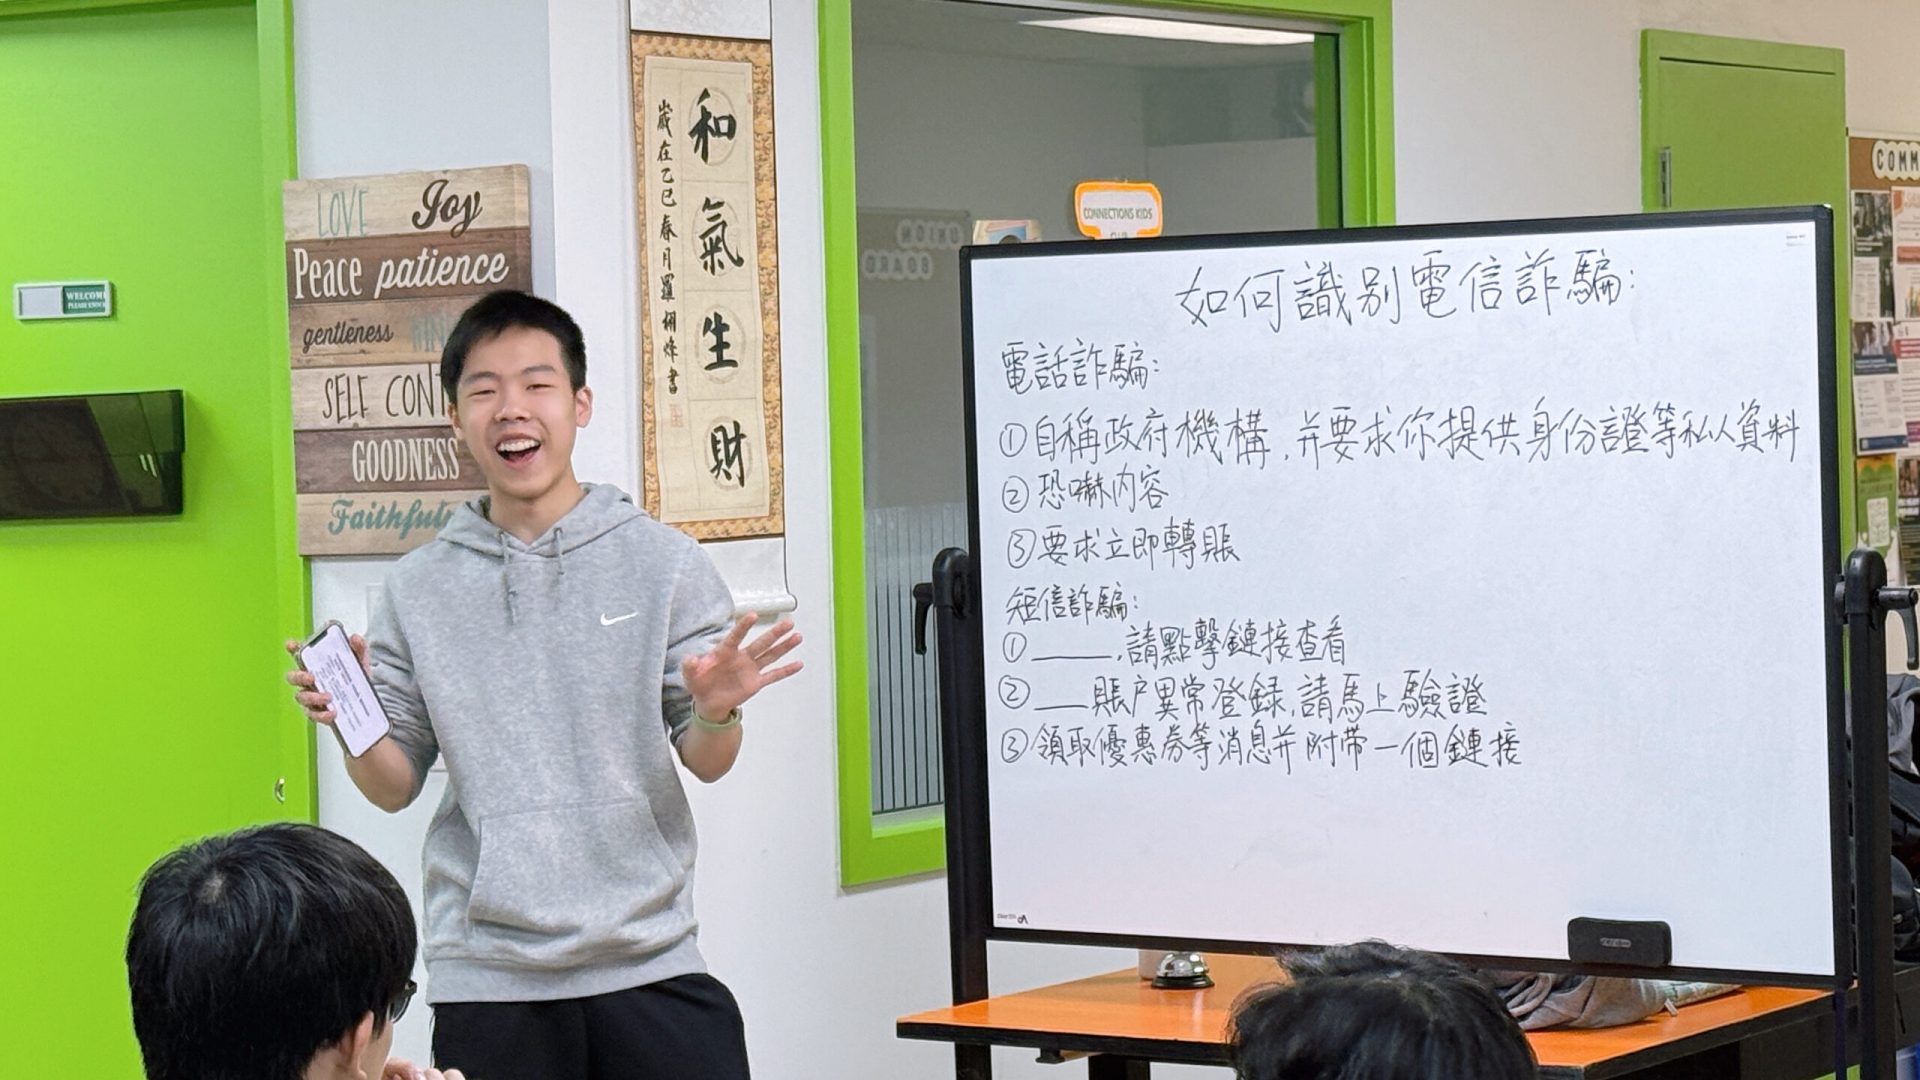 WELCOME
PLEASE KNOCK
LOVE Joy
Peace patience
gentleness
SELF CONT
GOODNESS
Faithful
和氣生財
歲在乙巳春月羅
書
CONNECTIONS KIDS
COMM
如何識别電信詐騙:
電話詐騙:
①自稱政府機構,并要求你提供身份證等私人資料
②恐嚇内容
③要求立即轉賬
短信詐騙:
①_____,請點擊鏈接查看
②___賬户異常登録,請馬上驗證
③領取優惠券等消息并附带一個鏈接